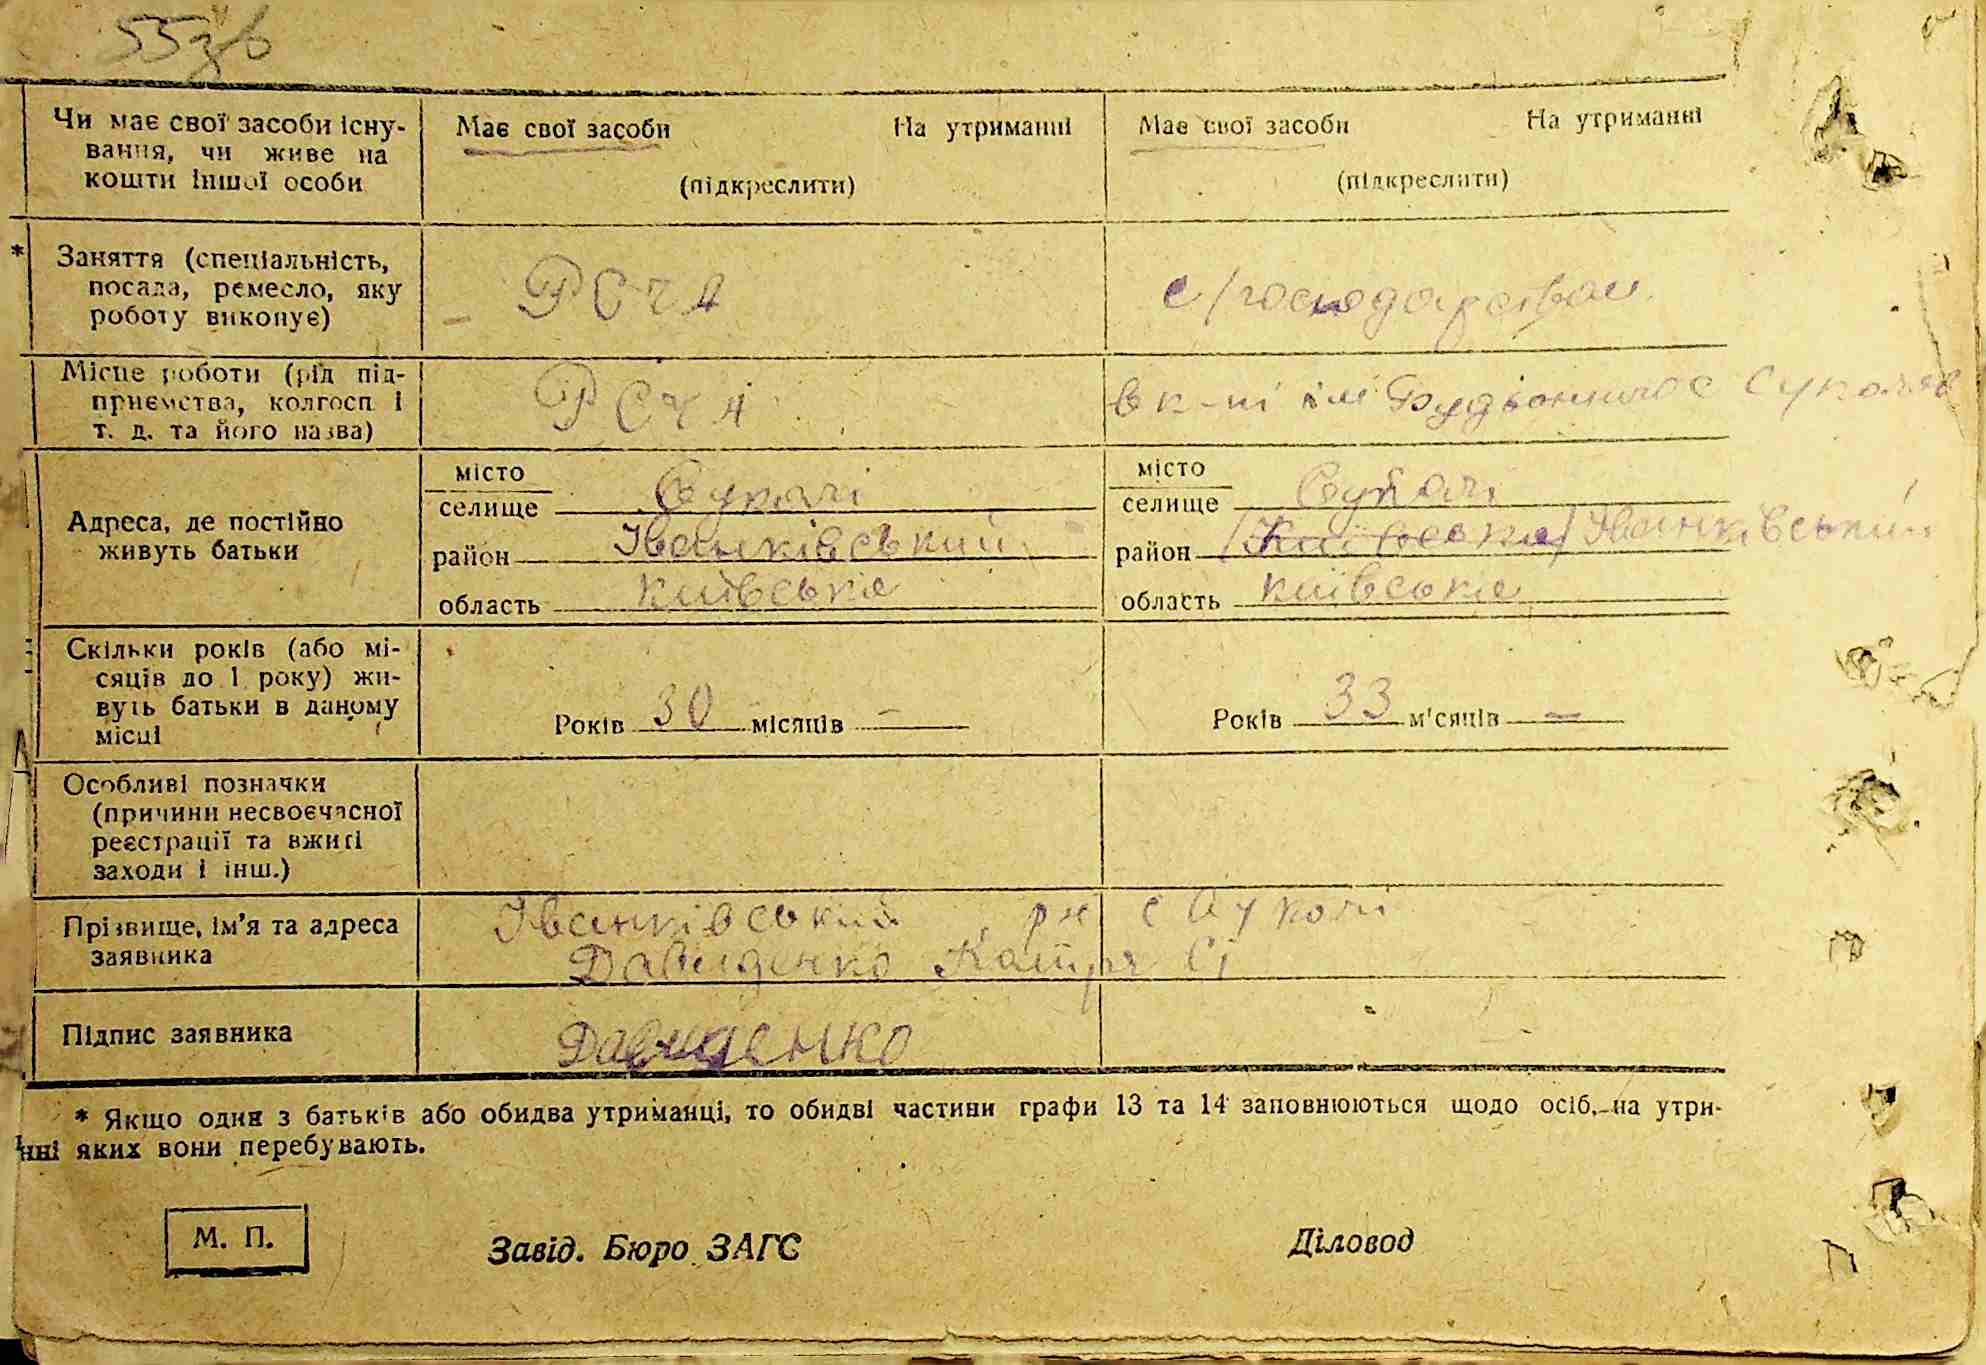 55зв
Чи має свої засоби існу-
вання, чи живе на
кошти іншої особи
Має свої засоби На утриманні
(підкреслити)
Має свої засоби На утриманні
(підкреслити)
* Заняття (спеціальність,
посада, ремесло, яку
роботу виконує)
РСЧА
с/господарством
Місце роботи (рід під-
приємства, колгосп і
т. д. та його назва)
РСЧА
в к-пі ім Будьонного с Сукачів
Адреса, де постійно
живуть батьки
місто
селище Сукачі
район Іванківський
область київська
місто
селище Сукачі
район (Київська) Іванківський
область київська
Скільки років (або мі-
сяців до 1 року) жи-
вуть батьки в даному
місці
Років 30 місяців —
Років 33 м'сяців —
Особливі позначки
(причини несвоєчасної
реєстрації та вжиті
заходи і інш.)
Прізвище, ім'я та адреса
заявника
Іванківський рн с Сукачі
Давиденко Катря
Підпис заявника
Давиденко
* Якщо один з батьків або обидва утриманці, то обидві частини графи 13 та 14 заповнюються щодо осіб, на утри-
нні яких вони перебувають.
М. П.
Завід. Бюро ЗАГС
Діловод